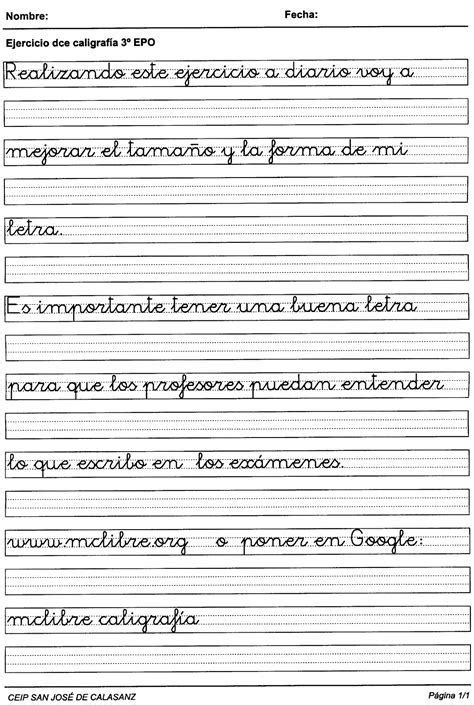 Nombre: Fecha:
Ejercicio dce caligrafía 3º EPO
Realizando este ejercicio a diario voy a
mejorar el tamaño y la forma de mi
letra.
Es importante tener una buena letra
para que los profesores puedan entender
lo que escribo en los exámenes.
www.mclibre.org o poner en Google:
mclibre caligrafía
CEIP SAN JOSÉ DE CALASANZ Página 1/1